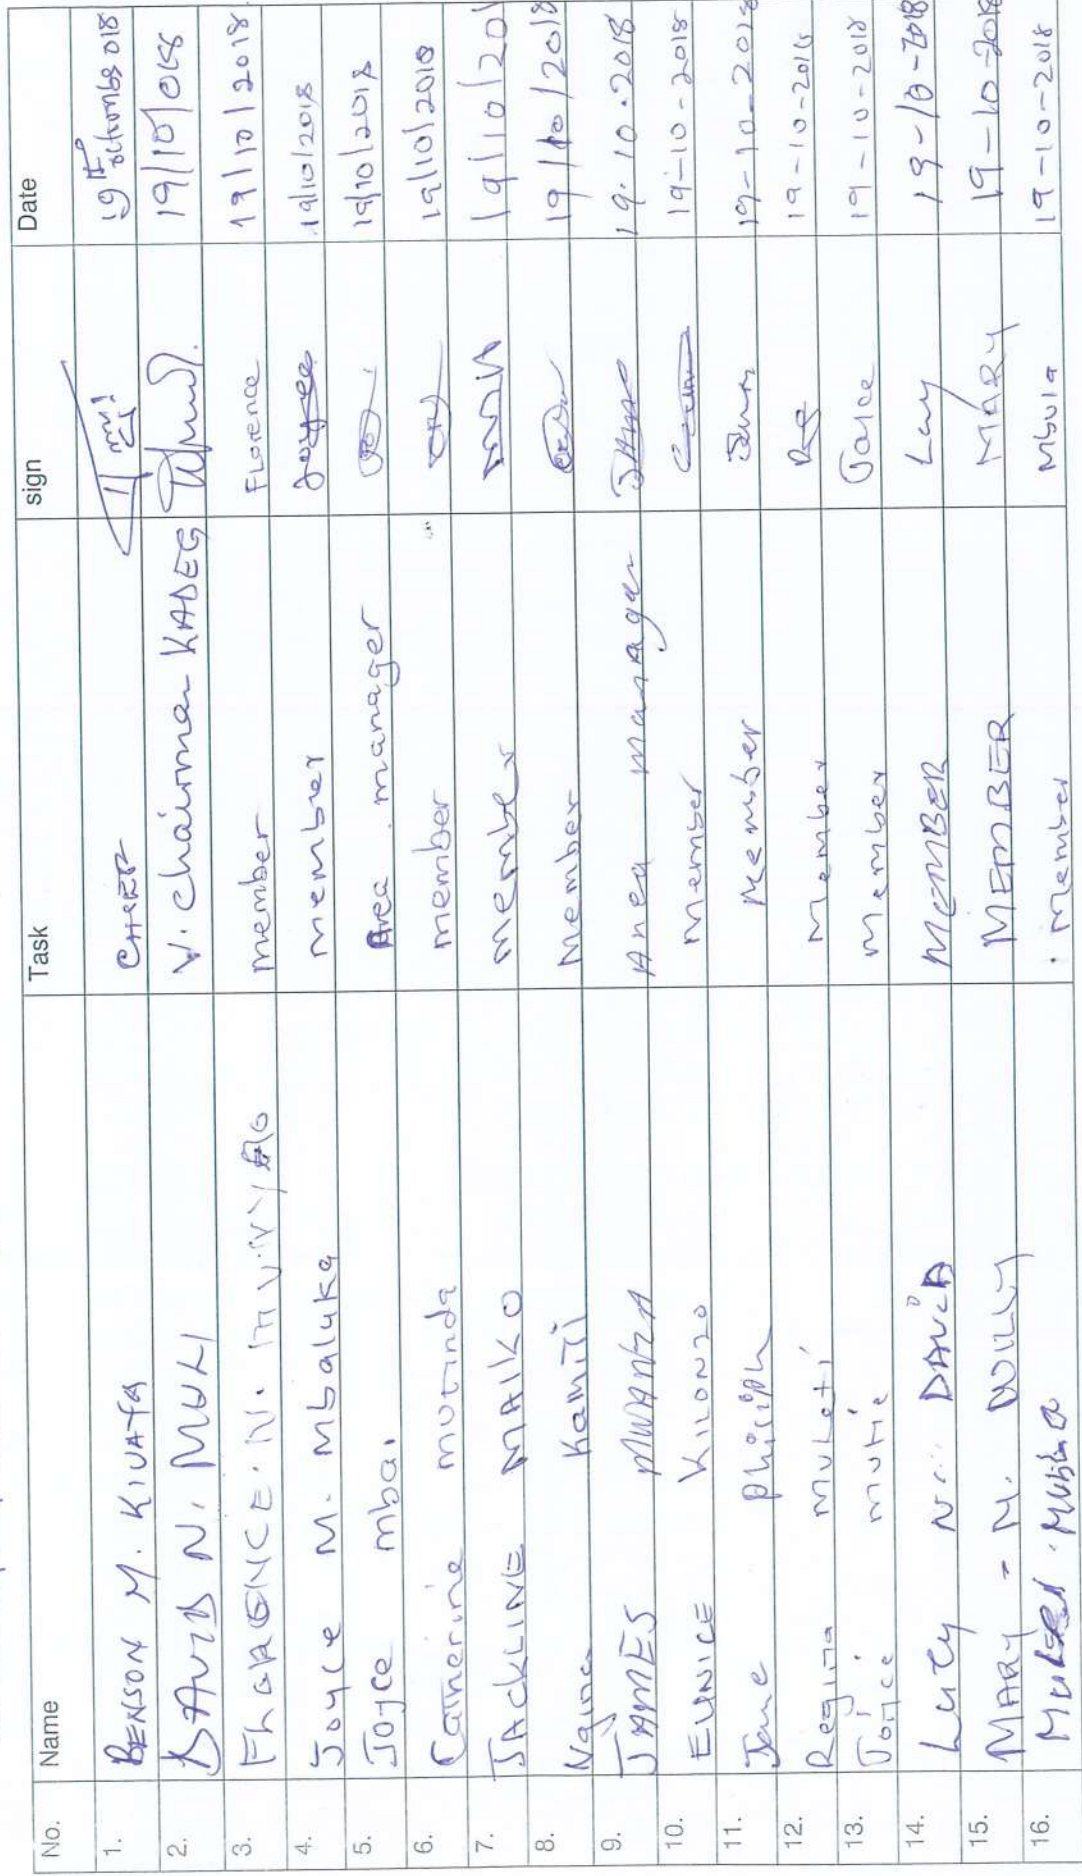 No. Name Task sign Date
1. BENSON M. KIVATA CHIEF 19th 018
2. DAVID N. MULI V. chairman KADEG 19/10/018
3. N. member FLorence 19/10/2018
4. Joyce M. Mbaluka member Joyce 19/10/2018
5. Joyce mbai Area manager 19/10/2018
6. Catherine mutinda member 19/10/2018
7. JACKLINE MAIKO member 19/10/201
8. Ngina Kamiti Member 19/10/2018
9. JAMES MWANZA Area manager 19.10.2018
10. EUNICE KILONZO Member 19-10-2018
11. Jane Member 19-10-2018
12. Regina muteti Member 19-10-2018
13. Joice mutie Member Joice 19-10-2018
14. Lucy N. DAViD MEMBER 19-10-2018
15. MARY - M. WILLY MEMBER MARY 19-10-2018
16. member Mbula 19-10-2018